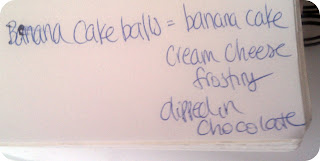 Banana Cake balls = banana cake
cream cheese
frosting
dipped in
chocolate